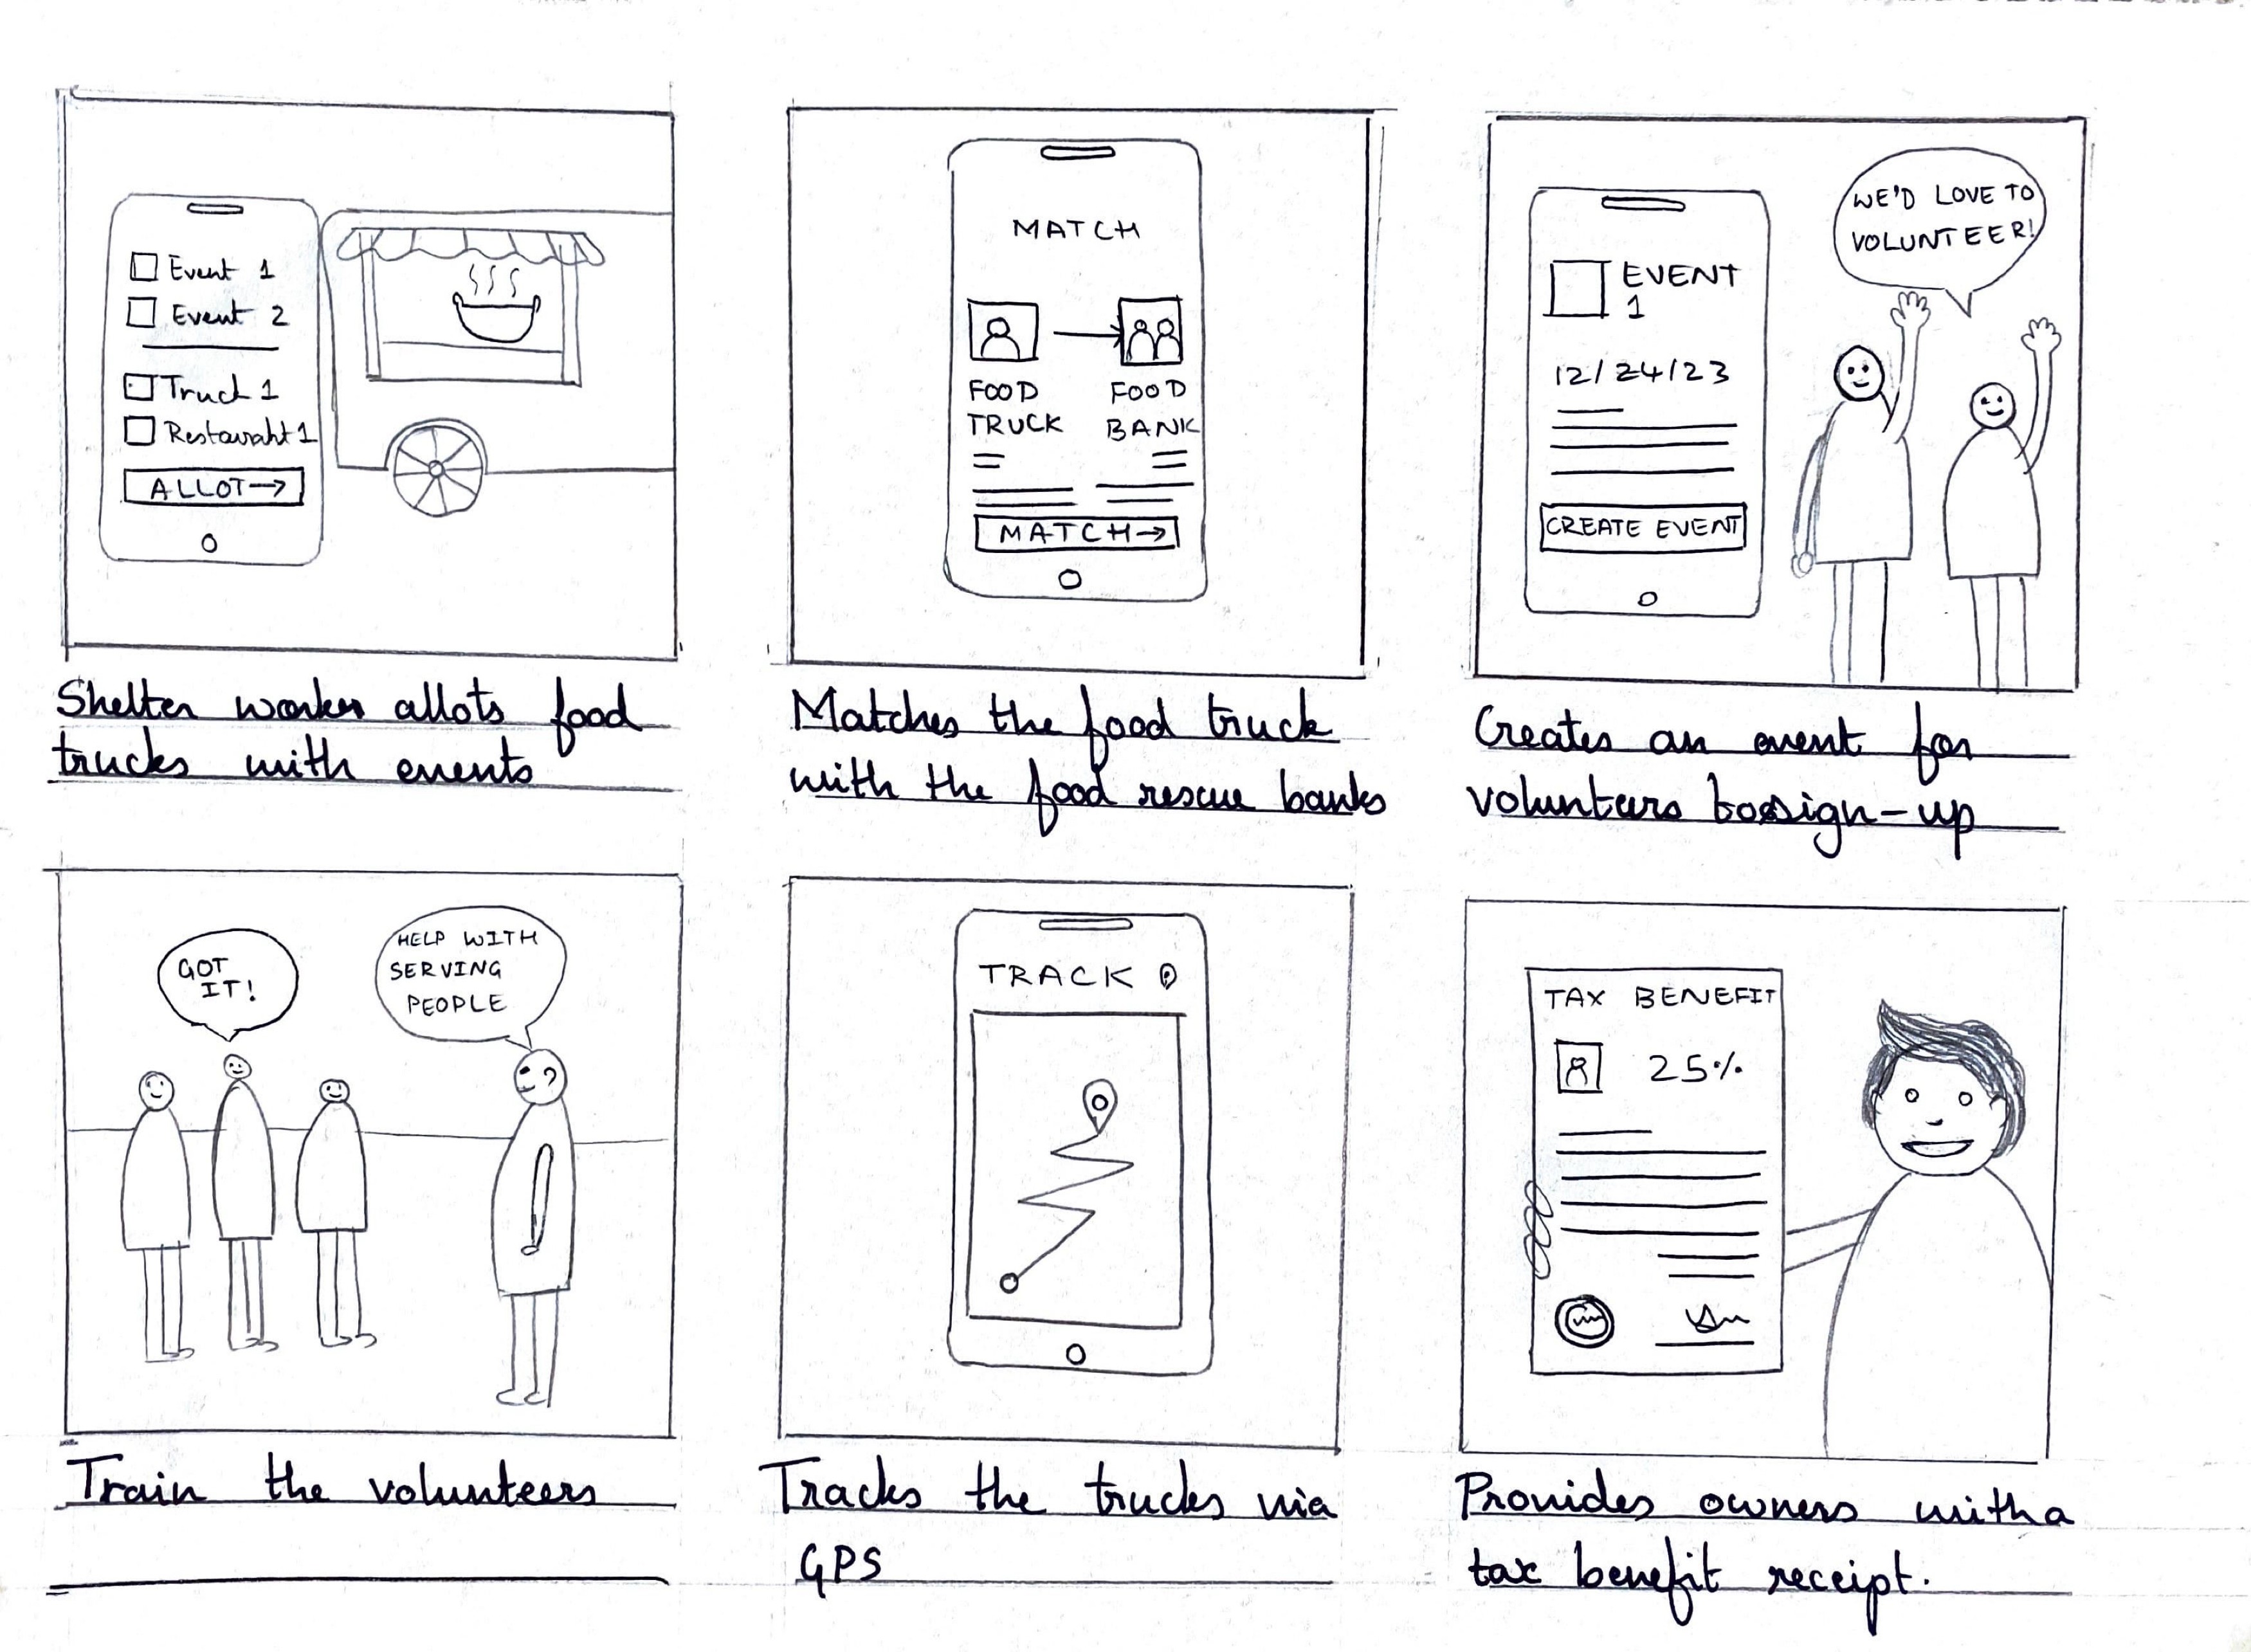 Event 1
Event 2
Truck 1
Restauraht 1
ALLOT→
Shelter worker allots food
trucks with events
MATCH
FOOD TRUCK
FOOD BANK
MATCH→
Matches the food truck
with the food rescue banks
WE'D LOVE TO
VOLUNTEER!
EVENT
1
12/24/23
CREATE EVENT
Creates an event for
volunteers to sign-up
GOT
IT!
HELP WITH
SERVING
PEOPLE
Train the volunteers
TRACK
Tracks the trucks via
GPS
TAX BENEFIT
25%
Provides owners with a
tax benefit receipt.